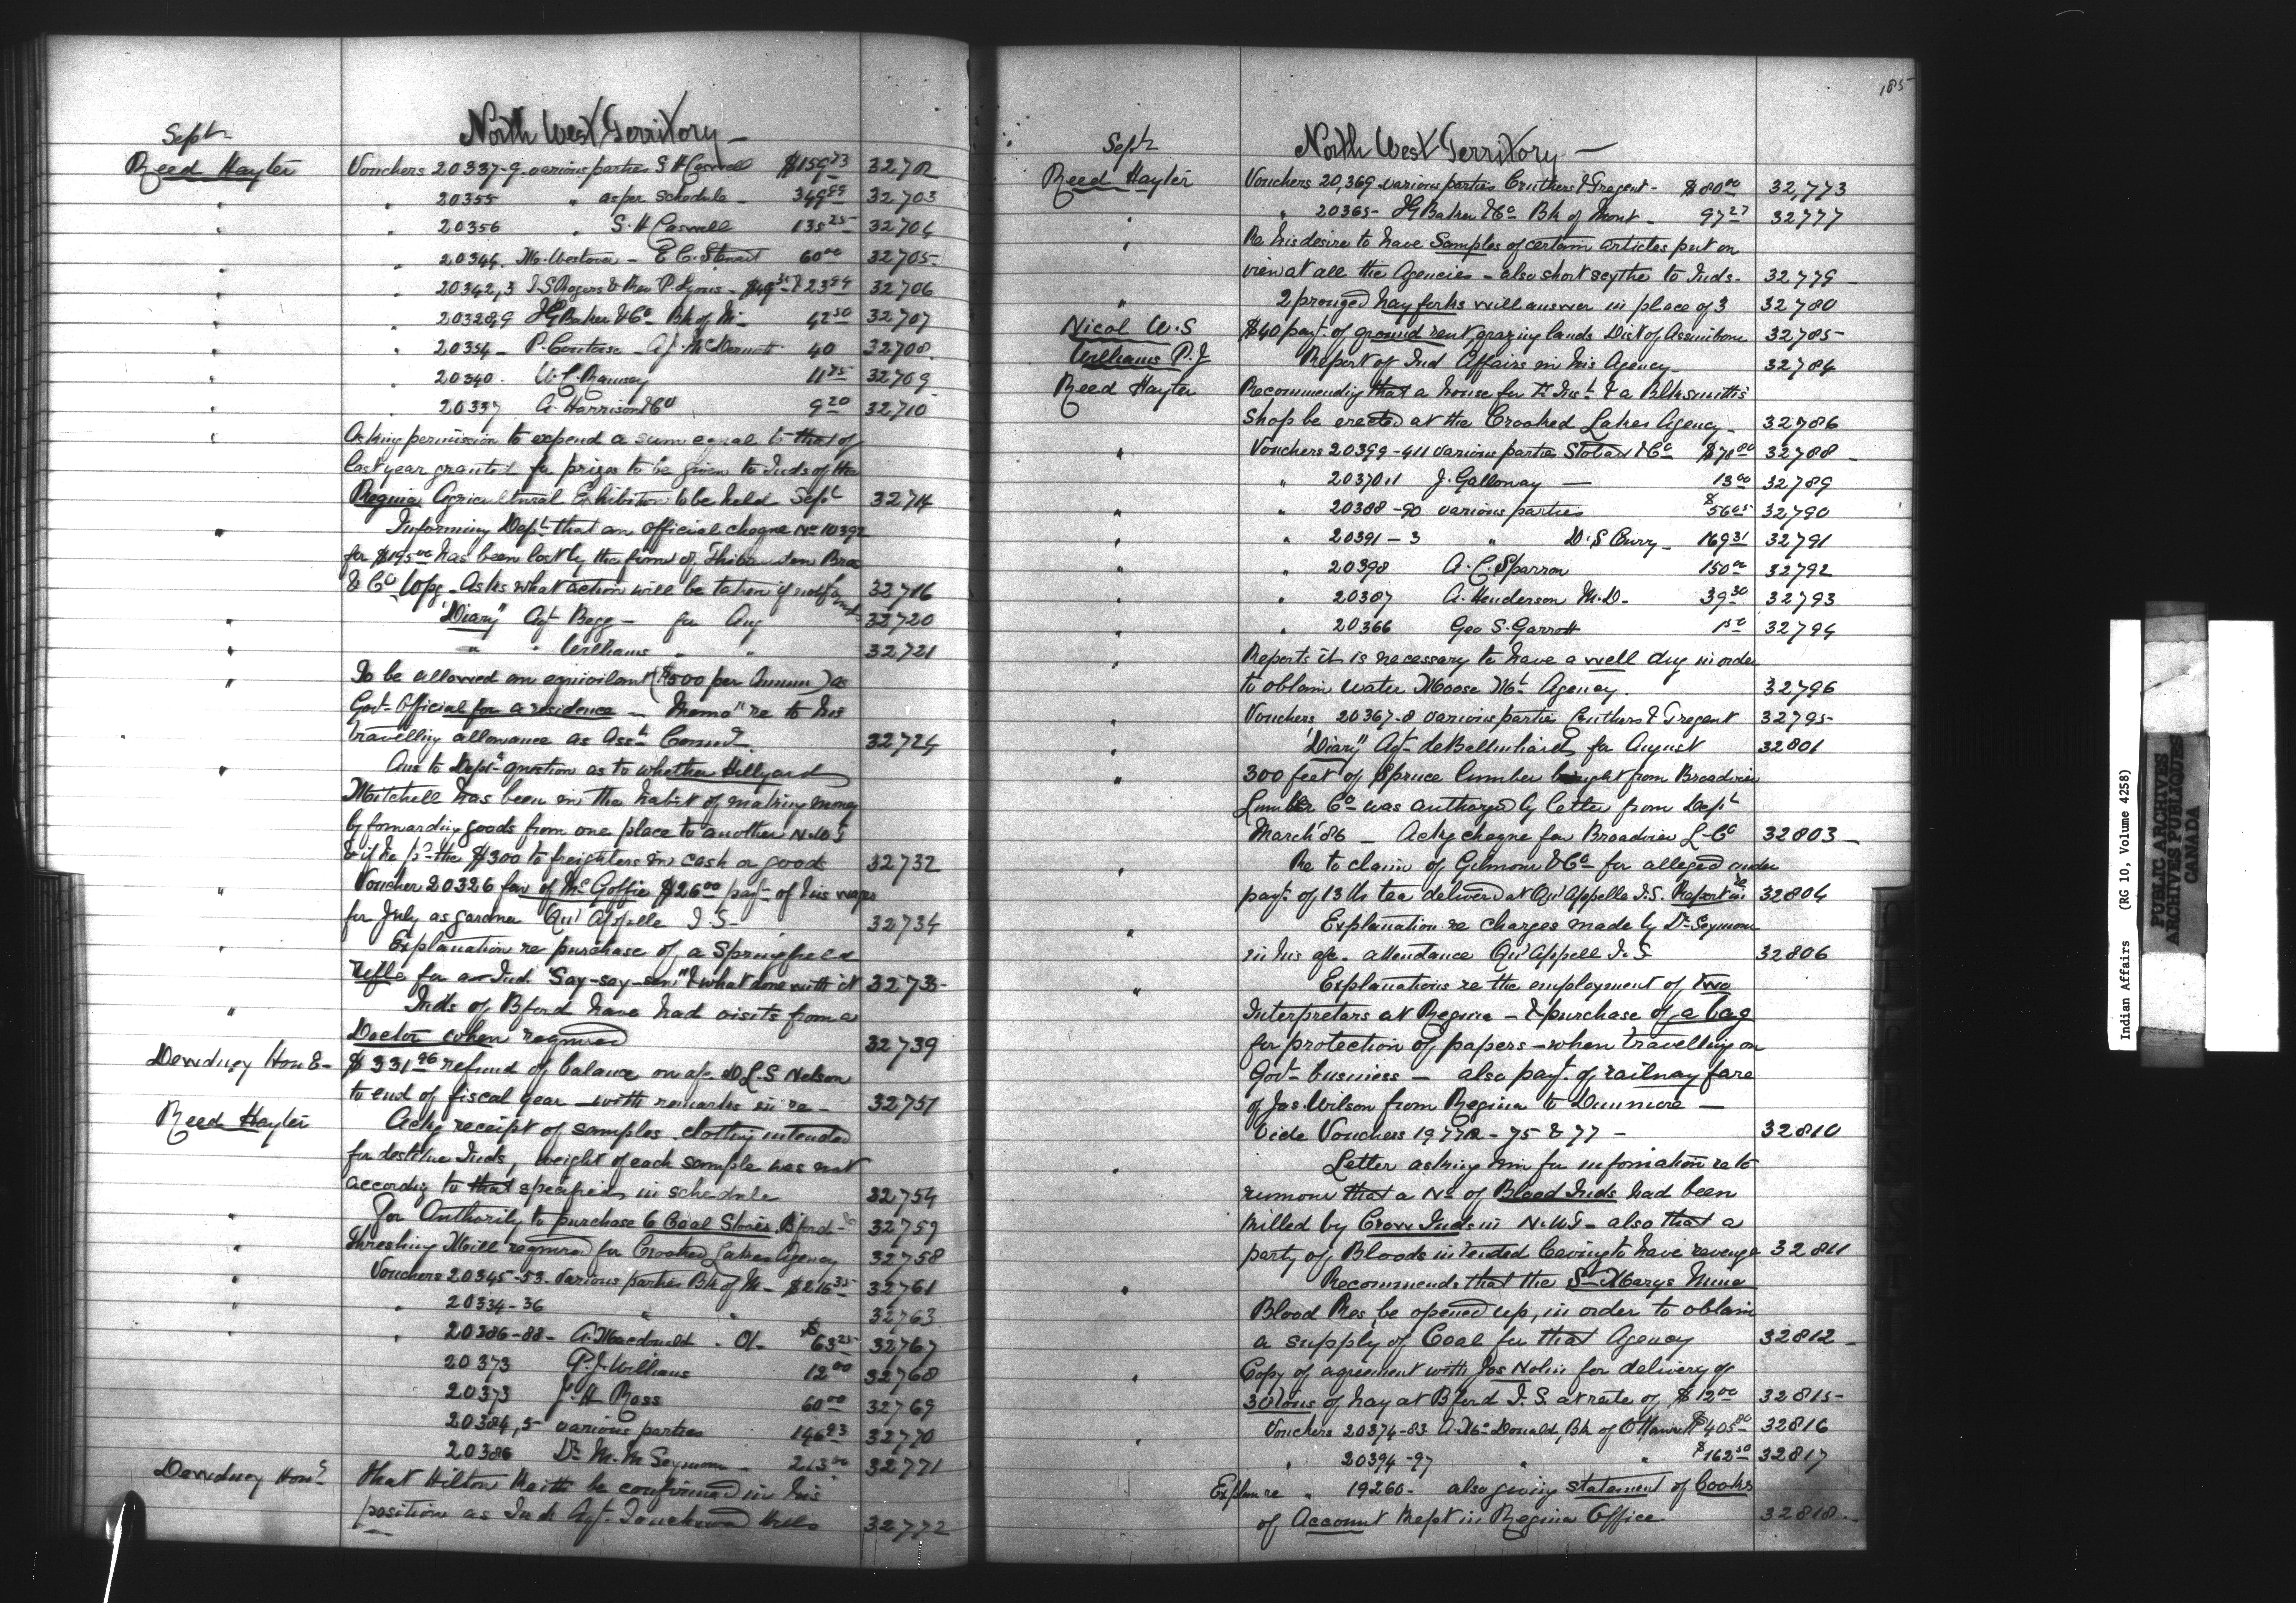 Sept
North West Territory
Reed Hayter Vouchers 20337-9 various parties S H Caswell $159 73 32702
" " 20355 " as per Schedule 349 89 32703
" " 20356 " S. H Caswell 135 25 32704
" " 20344 M. Westover - E C. Stewart 60 00 32705
" " 20342,3 J. S Rogers & Rev P. Lyons 23 94 32706
" " 20328,9 J G Baker & Co Bk of M 42 50 32707
" " 20354 - P. - A J. McDermott 40 32708
" " 20340. W. C. Ramsey 11 25 32709
" " 20337 A. Harrison & Co 9 20 32710
" Asking permission to expend a sum equal to that of
last year granted for prizes to be given to Inds of the
Regina Agricultural Exhibition to be held Sept 32714
" Informing Dept that an official cheque No 10392
for $195 00 has been lost by the firm of Thibaudeau Bros
& Co Wpg - Asks what action will be taken if not found 32716
" "Diary" Agt Begg - for Aug 32720
" " " Williams " " 32721
" To be allowed an equivilant ($500 per Annum) as
Govt Official for a residence - "Memo" re to his
travelling allowance as Asst Commr 32724
" Ans to Dept's question as to whether Hillyard
Mitchell has been in the habit of making money
by forwarding goods from one place to another N.W.T
& if he pd the $300 to freighters in cash or goods 32732
" Voucher 20326 fav of Mc Goffie $26 00 payt of his wages
for July as gardner Qu'Appelle I. S. 32734
" Explanation re purchase of a Springfield
rifle for an Ind. "Say-say-sim" & what done with it 32735
" Inds of Bford have had visits from a
Doctor when required 32739
Dewdney Hon E- $331 96 refund of balance on a/c D L. S Nelson
to end of fiscal year - with remarks in re - 32751
Reed Hayter Ackg receipt of samples clothing intended
for destitue Inds, weight of each sample was not
according to that specified in schedule 32754
" For Authority to purchase 6 Coal Stoves Bford 32759
" Threshing Mill required for Crooked Lakes Agency 32758
" Vouchers 20345-53 - Various parties Bk of M - $216 35 32761
" " 20334-36 " " 32763
" " 20386-88 - A. Macdonald $63 25 32767
20373 P. J. Williams 12 00 32768
20373 J. H Ross 60 00 32769
20384,5 various parties 146 23 32770
20386 Dr M. M Seymour - 213 00 32771
Dewdney Hon E That Hilton Keith be confirmed in his
position as Ind Agt. Touchwood Hills 32772
185
Sept
North West Territory -
Reed Hayter Vouchers 20,369 various parties Cruthers & Tregent - $80 00 32,773
" " 20365 - J G Baker & Co Bk of Mont - 97 27 32777
" Re his desire to have Samples of certain articles put on
view at all the Agencies - also short scythe to Inds - 32779
" 2 pronged hay forks will answer in place of 3 32780
Nicol W. S $40 payt of ground rent grazing lands Dist of Assiniboia 32785
Williams P. J Report of Ind Affairs in his Agency - 32784
Reed Hayter Recommending that a house for & a Blksmith's
Shop be erected at the Crooked Lakes Agency - 32786
" Vouchers 20399-411 various parties Stobart & Co $78 80 32788
" 20370,1 J. Galloway - 13 00 32789
" " 20388-90 various parties $56 05 32790
" " 20391-3 " D. S Curry - 169 31 32791
" " 20398 A. C. Sparrow 150 00 32792
" " 20387 A. Henderson M. D. 39 30 32793
" " 20366 Geo S. Garrott 1 50 32794
" Reports it is necessary to have a well dug in order
to obtain water Moose Mt Agency. 32796
" Vouchers 20367-8 various parties Cruthers & Tregent 32795
" "Diary" Agt deBalinhard for August 32801
" 300 feet of Spruce lumber bought from Broadview
Lumber Co was authorized by letter from Dept
March '86 - Ackg cheque fav Broadview L - Co 32803
" Re to claim of Gilmour & Co for alleged under
payt of 13 lb tea delivered at Qu'Appelle I. S. Report in re 32804
" Explanation re charges made by Dr Seymour
in his a/c attendance Qu'Appell I. S 32806
" Explanations re the employment of two
Interpreters at Regina - & purchase of a bag
for protection of papers - when travelling on
Govt business - also payt. of railway fare
of Jas. Wilson from Regina to Dunmore -
Vide Vouchers 19772 - 75 & 77 - 32810
" Letter asking him for information re to
rumour that a No of Blood Inds had been
killed by Crow Inds in N. W T - also that a
party of Bloods intended leaving to have revenge 32811
" Recommends that the St Marys Mine
Blood Res, be opened up, in order to obtain
a supply of Coal for that Agency 32812
" Copy of agreement with Jas Nolin for delivery of
30 tons of hay at Bford I. S. at rate of $12 00 32815
" Vouchers 20374-83 A. Mc Donald, Bk of Ottawa $405 80 32816
" 20394-97 " " $162 50 32817
Explan re " 19260 - also giving statement of books
of Account kept in Regina Office. 32818
Indian Affairs (RG 10, Volume 4258)
PUBLIC ARCHIVES
ARCHIVES PUBLIQUES
CANADA